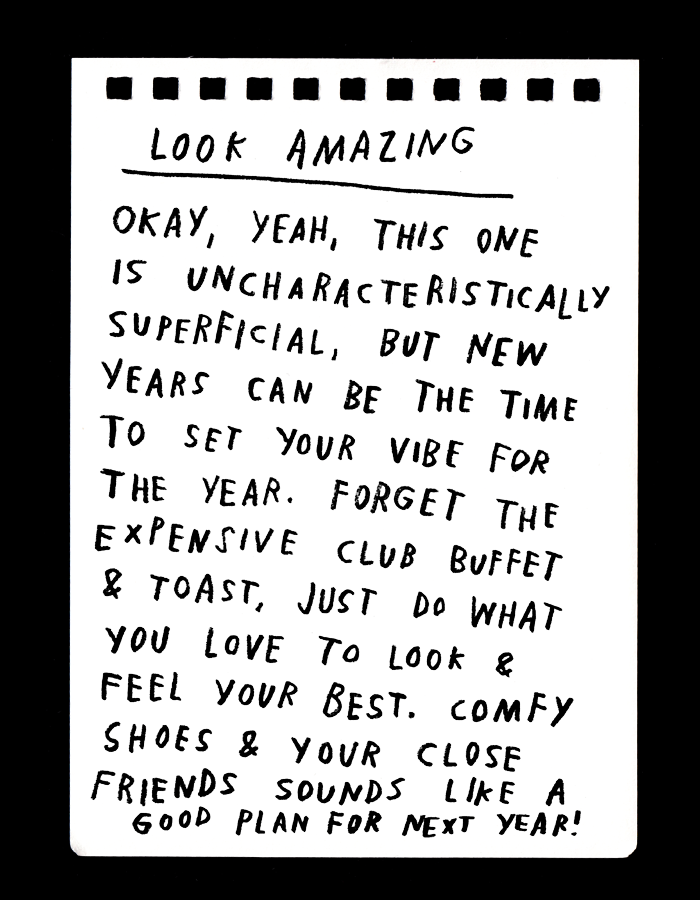 LOOK AMAZING
OKAY, YEAH, THIS ONE
IS UNCHARACTERISTICALLY
SUPERFICIAL, BUT NEW
YEARS CAN BE THE TIME
TO SET YOUR VIBE FOR
THE YEAR. FORGET THE
EXPENSIVE CLUB BUFFET
& TOAST, JUST DO WHAT
YOU LOVE TO LOOK &
FEEL YOUR BEST. COMFY
SHOES & YOUR CLOSE
FRIENDS SOUNDS LIKE A
GOOD PLAN FOR NEXT YEAR!